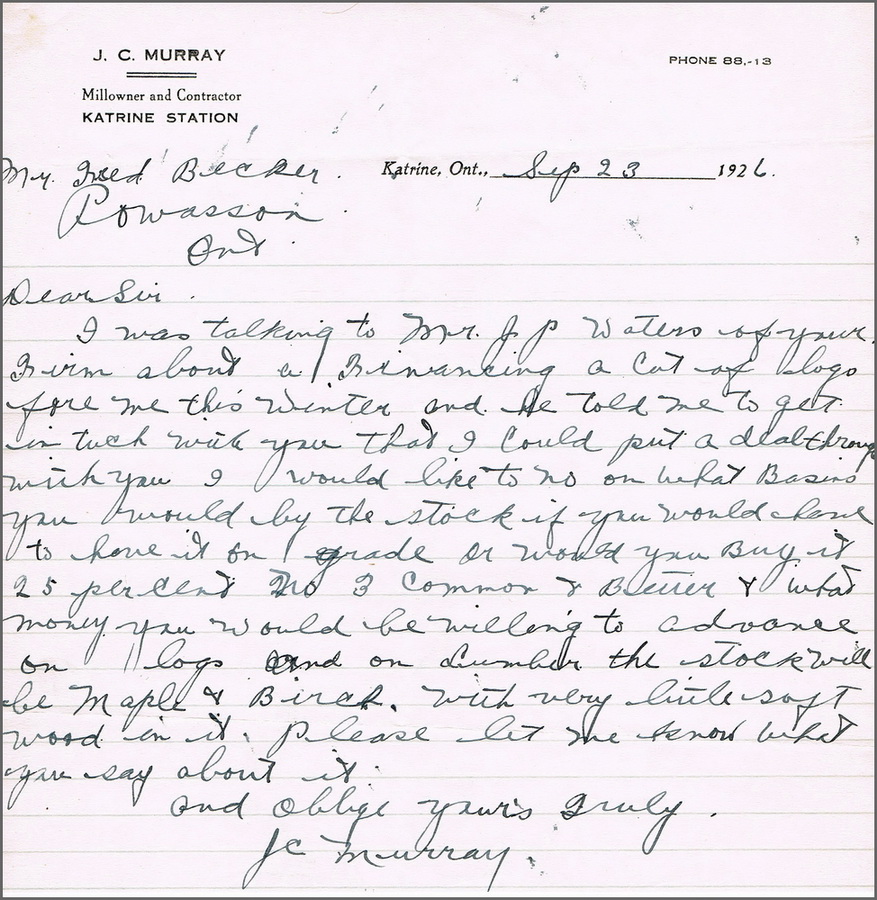 J. C. MURRAY
PHONE 88,-13
Millowner and Contractor
KATRINE STATION
Mr. Fred Becker.
Katrine, Ont., Sep 23 1926.
Powasson.
Ont.
Dear Sir.
I was talking to Mr. J P Waters of your
Firm about a Finvancing a Cut of logs
fore me this Winter and he told me to get
in tuch with you that I Could put a deal through
with you I would like to no on what Basins
you would by the stock if you would have
to have it on grade or would you Buy it
25 per cent No 3 Common & Better & what
money you would be willing to advance
on logs and on Lumber the stock will
be Maple & Birch. with very little soft
wood in it. Please let me know what
you say about it.
and oblige yours Truly.
JC Murray.